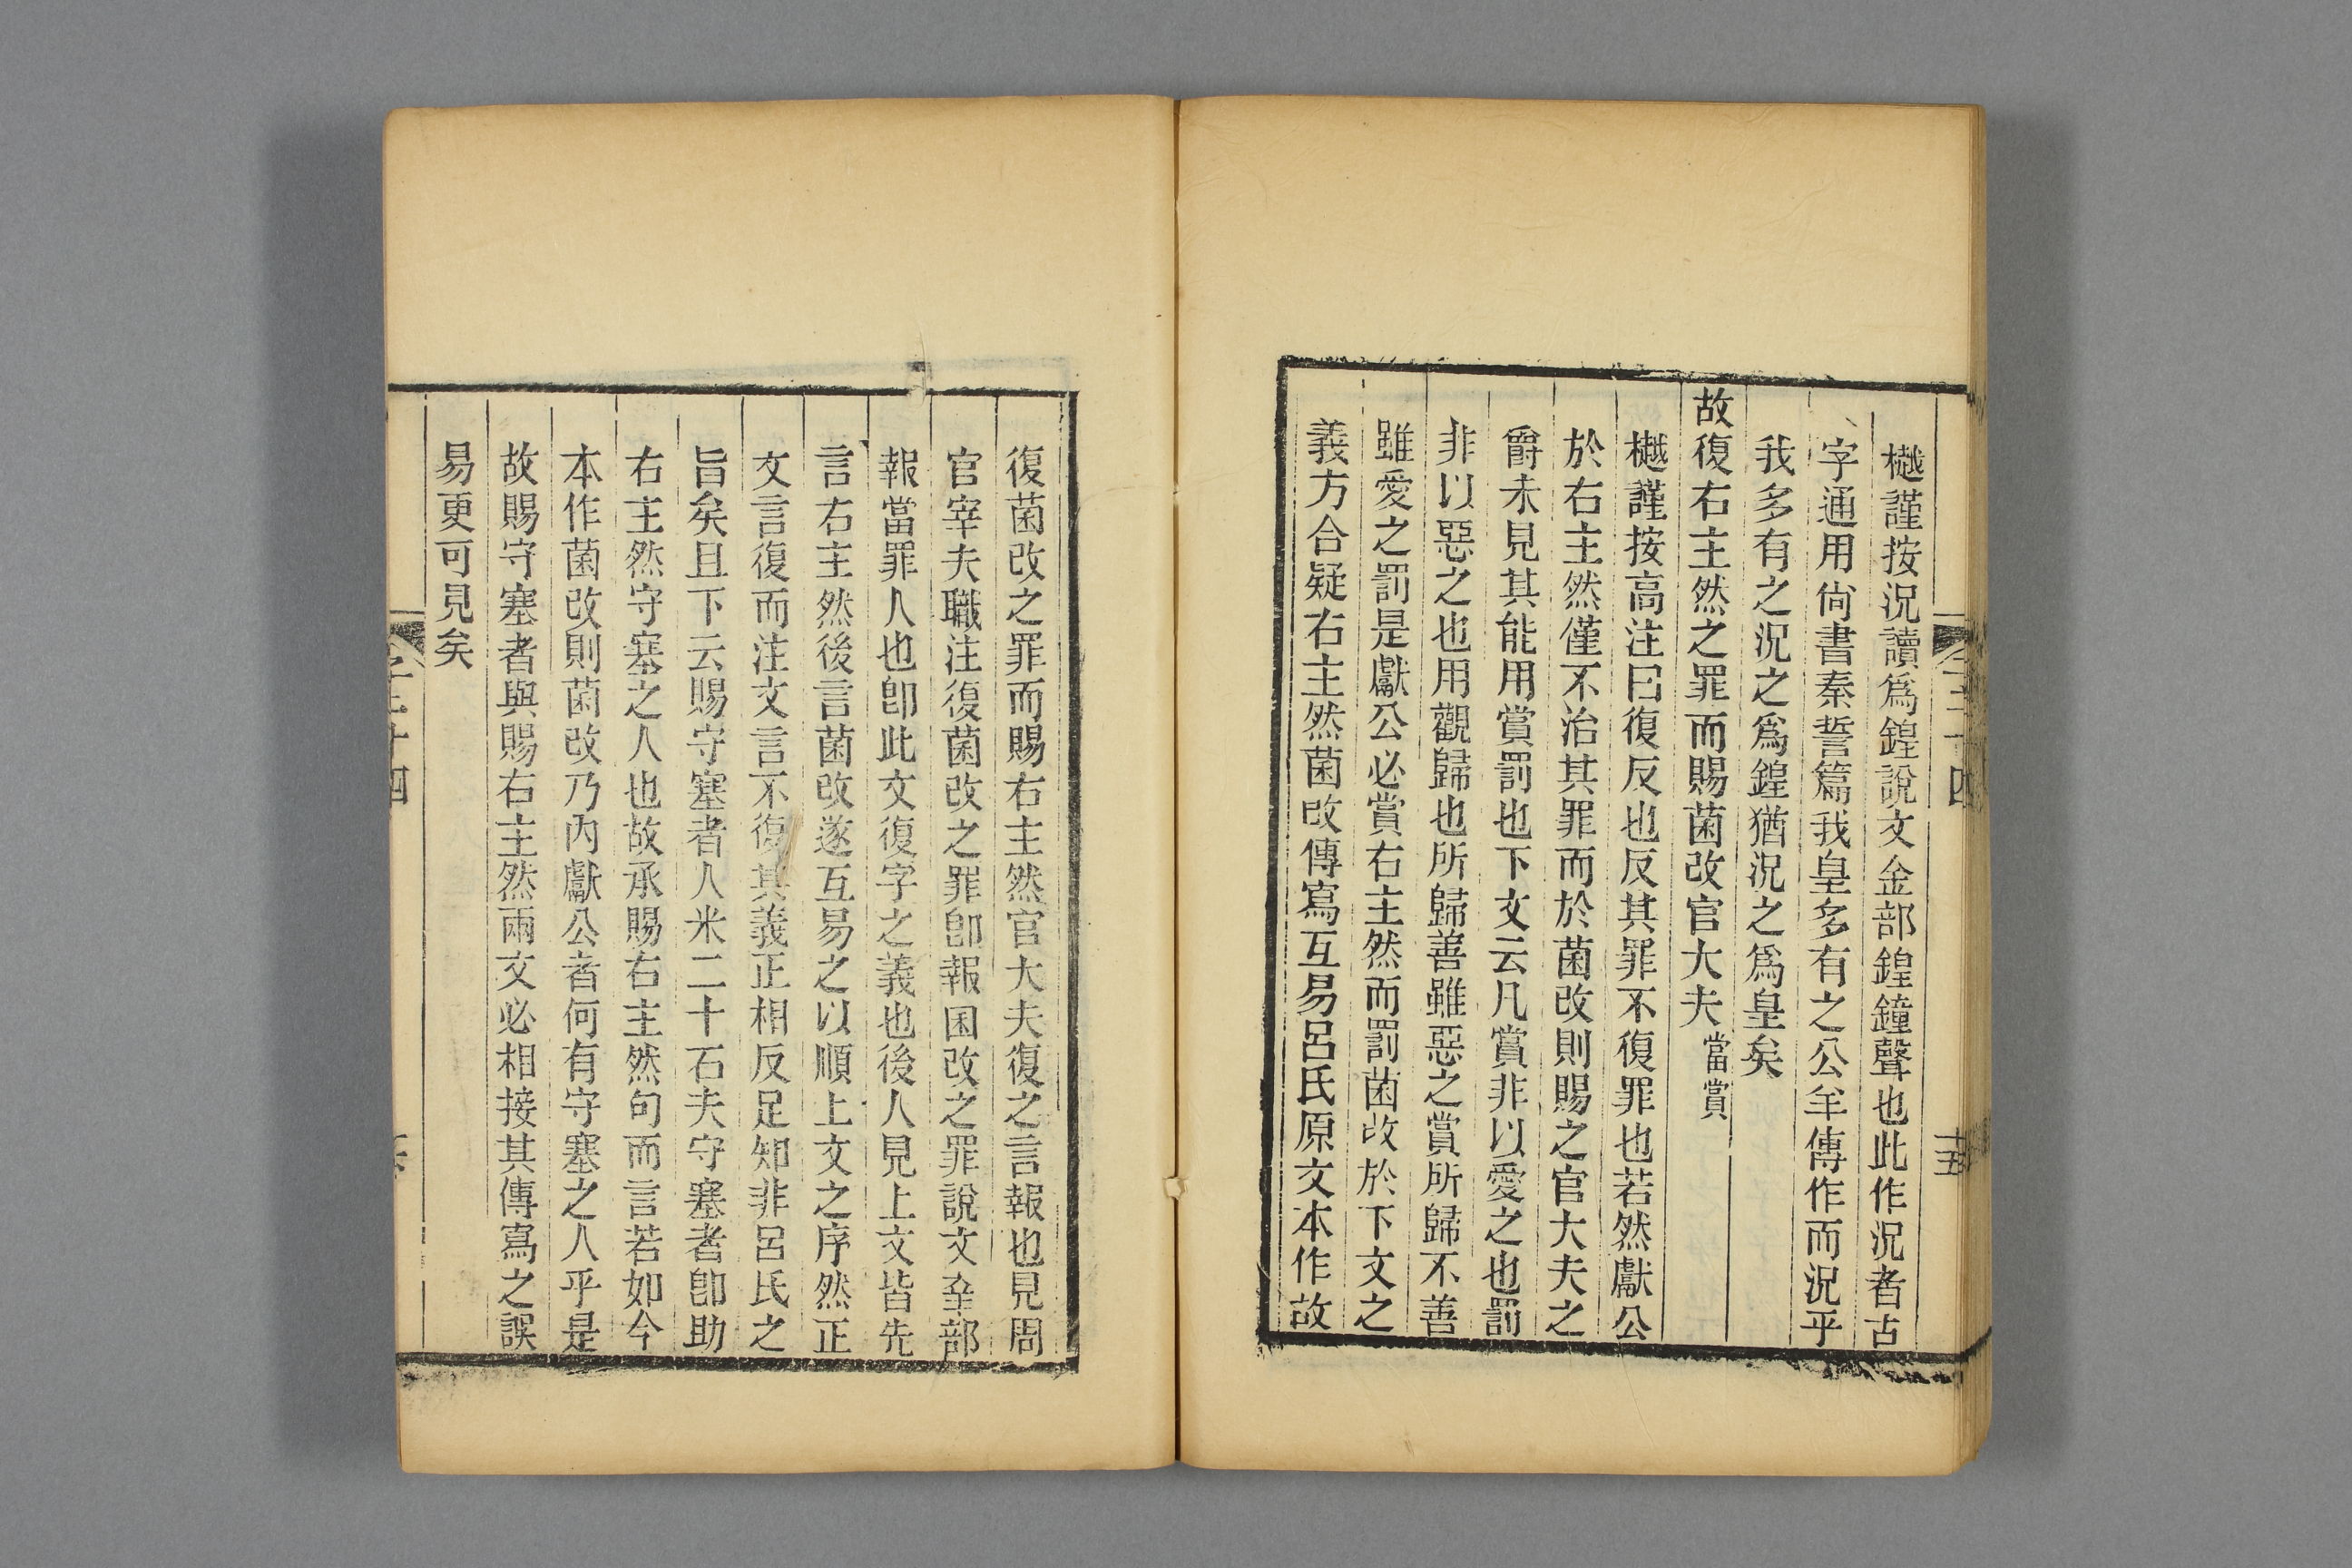 樾謹按況讀爲鍠說文金部鍠鐘聲也此作況者古
字通用尙書秦誓篇我皇多有之公羊傳作而況乎
我多有之況之爲鍠猶況之爲皇矣
故復右主然之罪而賜菌改官大夫當賞
樾謹按高注曰復反也反其罪不復罪也若然獻公
於右主然僅不治其罪而於菌改則賜之官大夫之
爵未見其能用賞罰也下文云凡賞非以愛之也罰
非以惡之也用觀歸也所歸善雖惡之賞所歸不善
雖愛之罰是獻公必賞右主然而罰菌改於下文之
義方合疑右主然菌改傳寫互易呂氏原文本作故
復菌改之罪而賜右主然官大夫復之言報也見周
官宰夫職注復菌改之罪卽報囷改之罪說文㚔部
報當罪人也卽此文復字之義也後人見上文皆先
言右主然後言菌改遂互易之以順上文之序然正
文言復而注文言不復其義正相反足知非呂氏之
旨矣且下云賜守塞者人米二十石夫守塞者卽助
右主然守塞之人也故承賜右主然句而言若如今
本作菌改則菌改乃內獻公者何有守塞之人乎是
故賜守塞者與賜右主然兩文必相接其傳寫之誤
易更可見矣